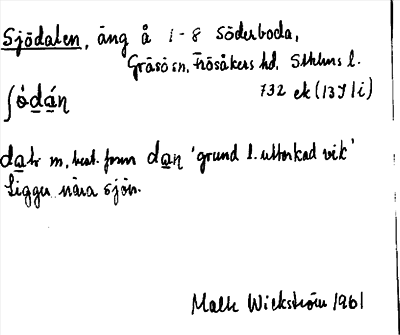 Sjödalen, äng å 1-8 Söderboda,
Gräsö sn, Frösåkers hd, Sthlms l.
132 ek (13J 1i)
ʃó̀dán
dalr m, best. form dan 'grund l. uttorkad vik'
Ligger nära sjön.
Malte Wickström 1961